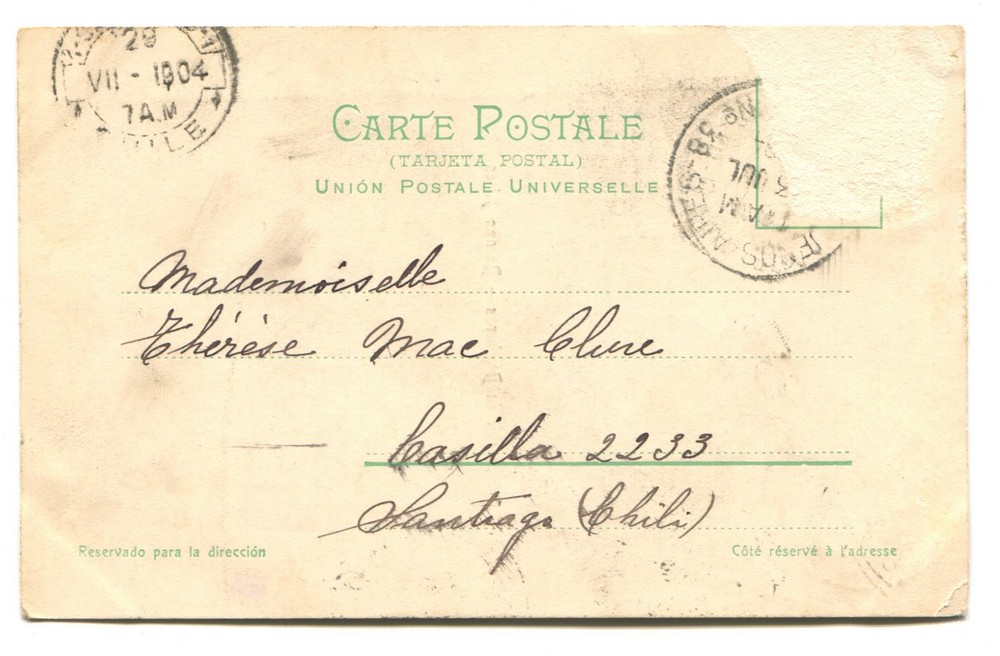 29
VII - 1904
7 A.M
CARTE POSTALE
(TARJETA POSTAL)
UNIÓN POSTALE UNIVERSELLE
Nº 58
JUL
AIRES
Mademoiselle
Thérèse Mac Clure
Casilla 2233
Santiago (Chili)
Reservado para la dirección
Côté réservé à l'adresse